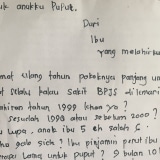 uk anakku Putut.
Dari
Ibu
yang melahirka
mat ulang tahun pokoknya panjang um
t selalu kalau sakit BPJS di lemari
ahiran tahun 1999 kan ya?
sesudah 1998 atau sebelum 2000?
u lupa. anak ibu 5 eh salah 6.
ho gole sich? Ibu pinjamin perut ibu
puput? 9 bulan 10